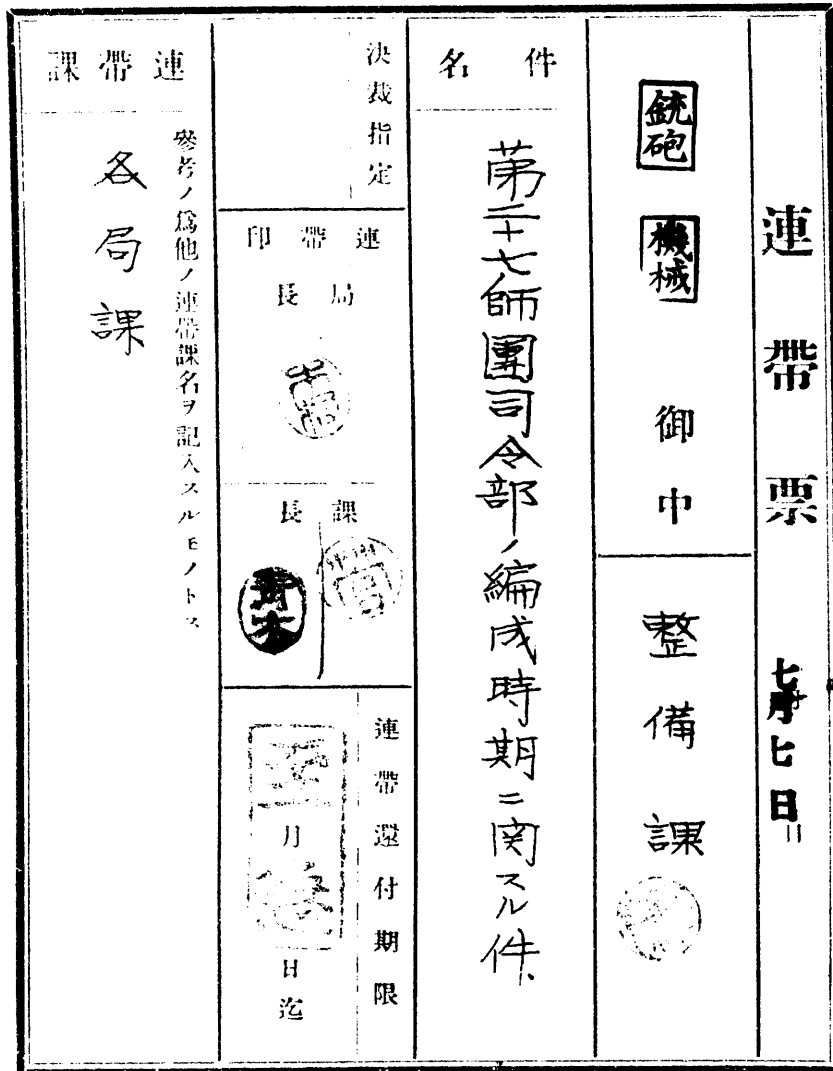 連帶票
七月七日
銃砲 機械 御中
整備課
件名
第二十七師團司令部ノ編成時期ニ関スル件、
決裁指定
連帶印
局長
課長
青木
連帶還付期限
月
日迄
連帶課
參考ノ爲他ノ連帶課名ヲ記入スルモノトス
各局課